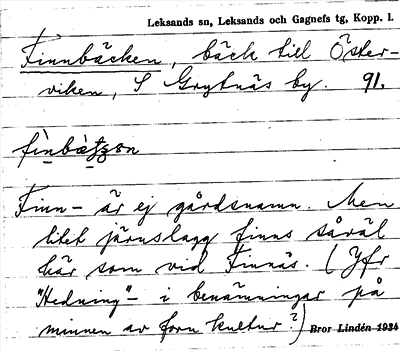 Leksands sn, Leksands och Gagnefs tg, Kopp. l.
Finnbäcken, bäck till Öster-
viken, S Grytnäs by. 91.
Finn- är ej gårdsnamn. Men
litet järnslagg finns såväl
här som vid Finnäs. (Jfr
"Hedning"- i benämningar på
minnen av forn kultur?)
Bror Lindén 1934